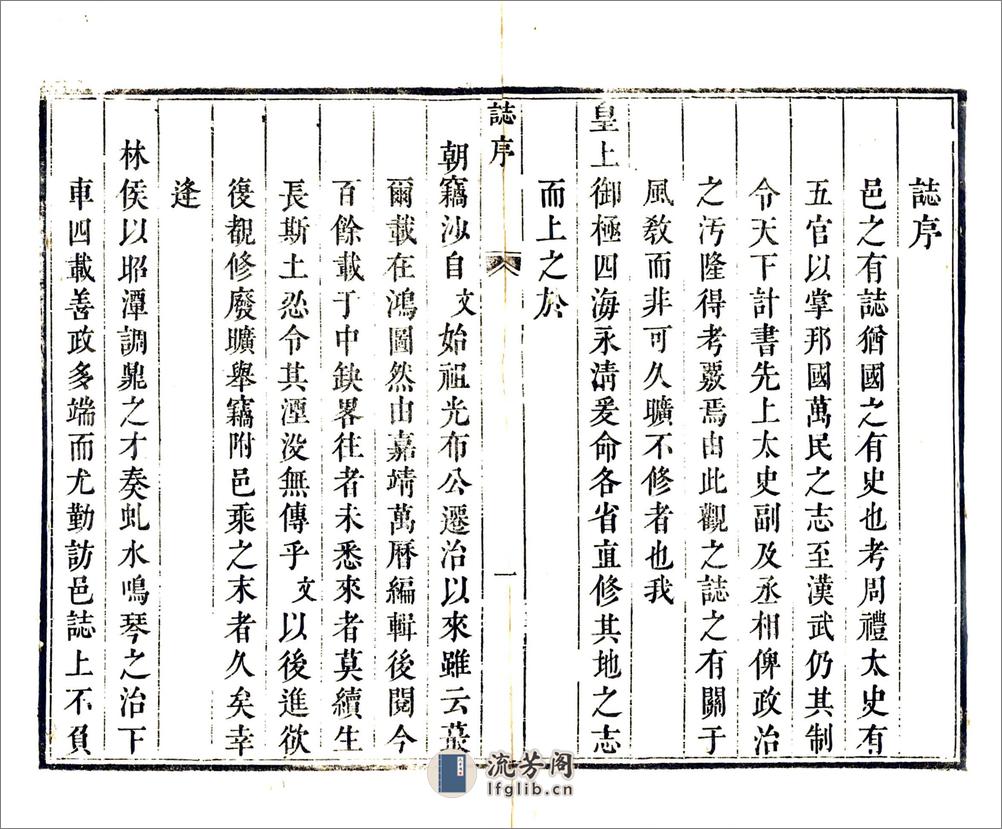 誌序
邑之有誌猶國之有史也考周禮太史有
五官以掌邦國萬民之志至漢武仍其制
令天下計書先上太史副及丞相俾政治
之汚隆得考覈焉由此觀之誌之有關于
風敎而非可久曠不修者也我
皇上御極四海永淸爰命各省直修其地之志
而上之於
誌序 一
朝竊沙自文始祖光布公遷治以來雖云蕞
爾載在鴻圖然由嘉靖萬曆編輯後閱今
百餘載丁中缺畧往者未悉來者莫續生
長斯土忍令其湮没無傳乎文以後進欲
復觀修廢曠舉竊附邑乘之末者久矣幸
逢
林侯以昭潭調鼎之才奏虬水鳴琴之治下
車四載善政多端而尤勤訪邑誌上不負
流芳阁
lfglib.cn